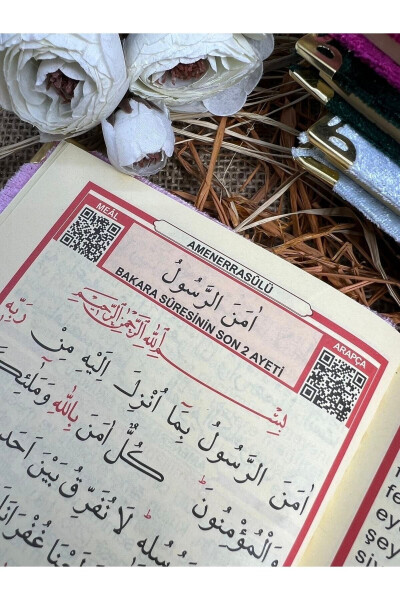 MEÂL
AMENERRASÛLÜ
اٰمَنَ الرَّسُولُ
BAKARA SÛRESİNİN SON 2 AYETİ
ARAPÇA
بِسْمِ اللهِ الرَّحْمٰنِ الرَّحِيمِ
اٰمَنَ الرَّسُولُ بِمَٓا اُنْزِلَ اِلَيْهِ مِنْ رَبِّهٖ
وَالْمُؤْمِنُونَۜ كُلٌّ اٰمَنَ بِاللّٰهِ وَمَلٰٓئِكَ
لَا نُفَرِّقُ بَيْنَ اَحَدٍ
غُفْرَانَكَ
fe
ey
şey
siy